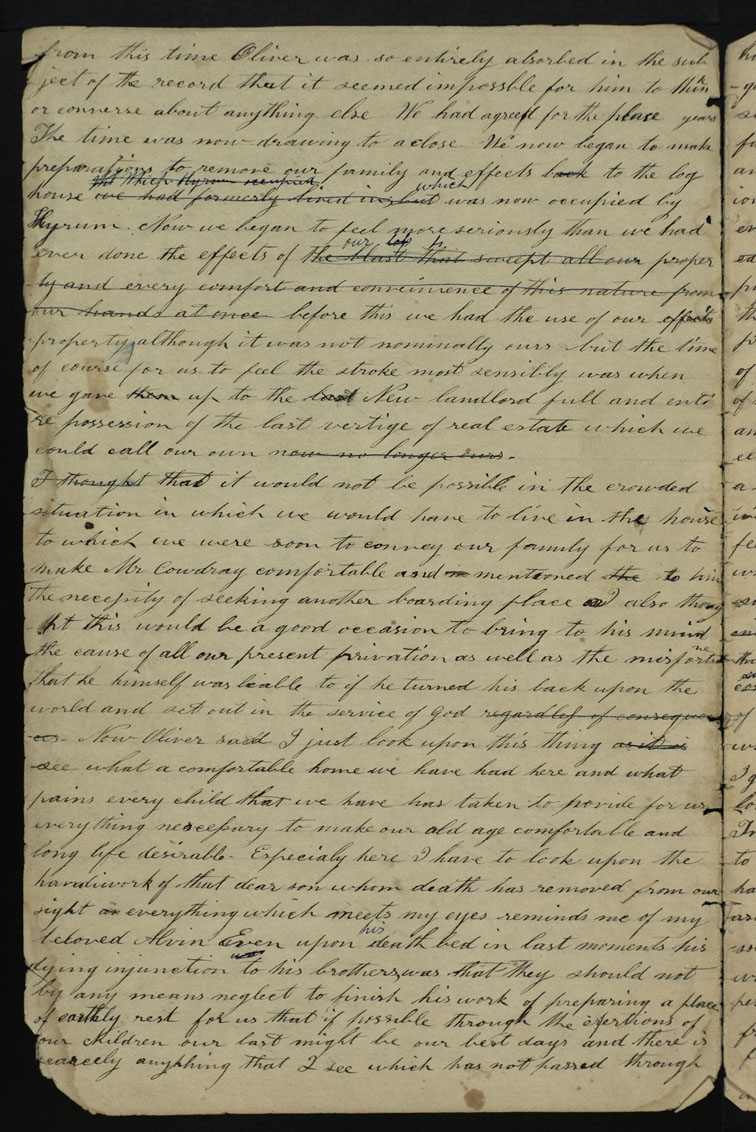 from this time Oliver was so entirely absorbed in the sub
-ject of the record that it seemed impossble for him to think
or converse about anything else We had agreed for the place years
The time was now drawing to a close We now began to make
preparations to remove our family and effects back to the log
that which Hyrum occupied which
house we had formerly lived in but was now occupied by
Hyrum. Now we began to feel more seriously than we had
our log h
ever done the effects of the blast that swept all our proper
-ty and every comfort and convienience of this nature from
our hands at once before this we had the use of our effects
property although it was not nominally ours but the time
of course for us to feel the stroke most sensibly was when
we gave them up to the last New landlord full and enti
re possession of the last vertige of real estate which we
could call our own now no longer ours.
I thought that it would not be possible in the crowded
situation in which we would have to live in the house
to which we were soon to convey our family for us to
make Mr Cowdray comfortable and mentioned the to him
the necessity of seeking another boarding place I also thoug
-ht this would be a good occasion to bring to his mind
the cause of all our present privation as well as the misfortune
that he himself was liable to if he turned his back upon the
world and set out in the service of God regardless of conseque
-ces- Now Oliver said I just look upon this thing as it is
see what a comfortable home we have had here and what
pains every child that we have has taken to povide for us
everything nescessary to make our old age comfortable and
long life desirable- Especialy here I have to look upon the
handiwork of that dear son whom death has removed from our
sight or everything which meets my eyes reminds me of my
his
beloved Alvin Even upon death bed in last moments his
was
dying injunction to his brothers was that they should not
by any means neglect to finish his work of preparing a place
of earthly rest for us that if possible through the exertions of
our children our last might be our best days and there is
scarecely anything that I see which has not passed through